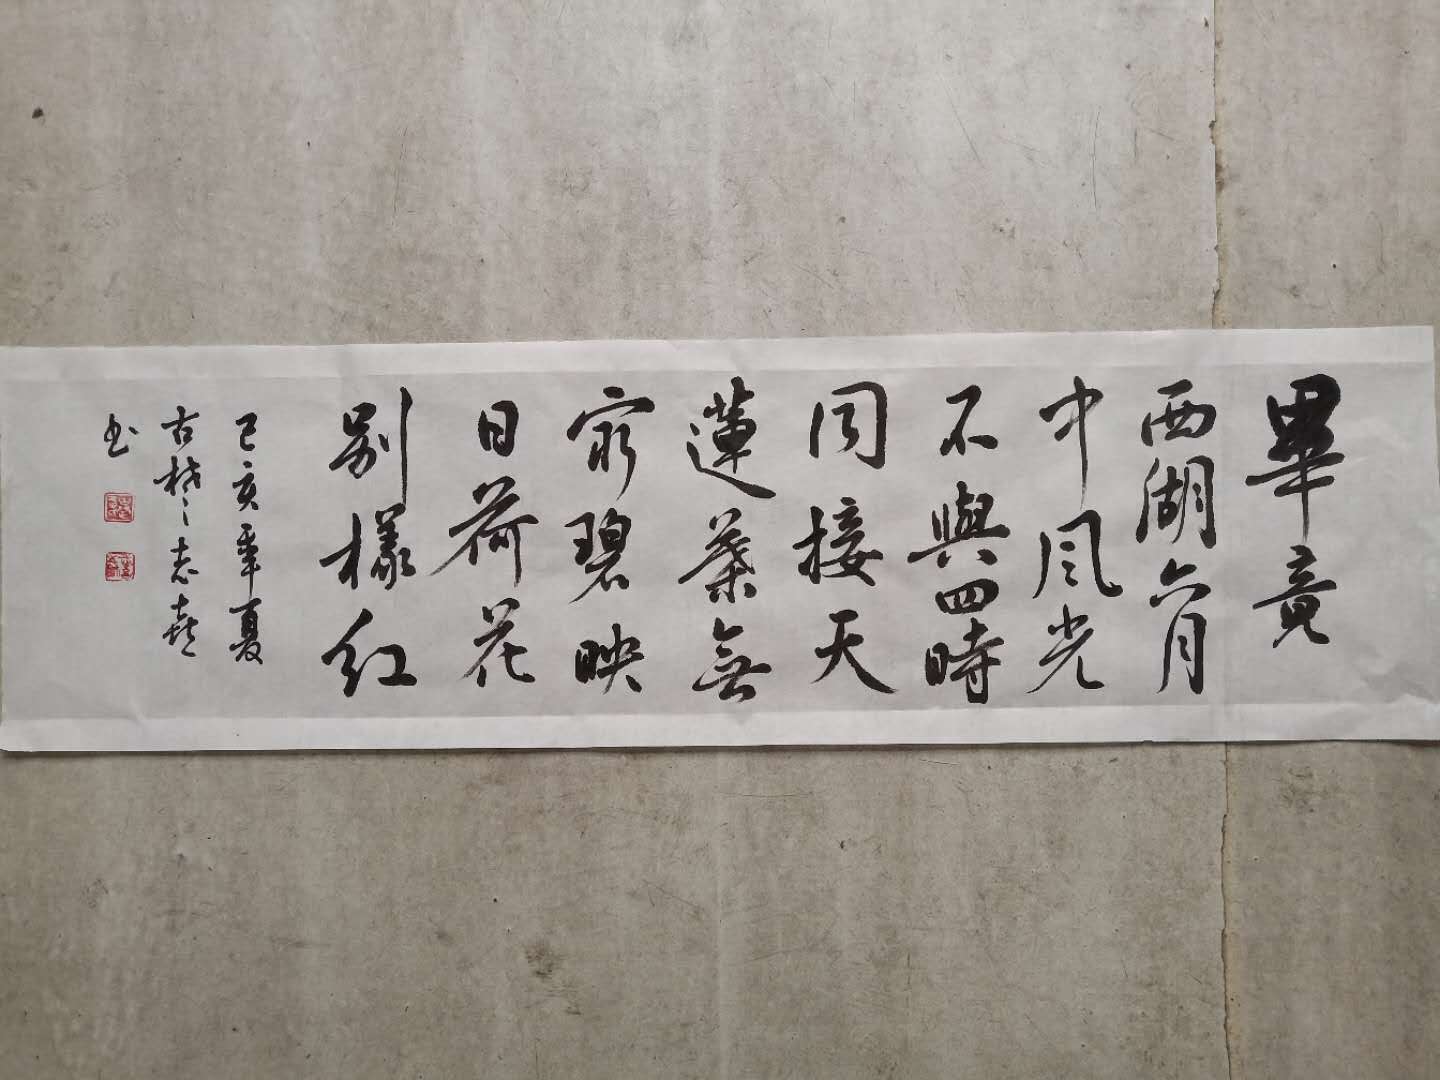 畢竟
西湖六月
中風光
不與四時
同接天
蓮葉無
窮碧映
日荷花
別樣紅
己亥年夏
古 志
书